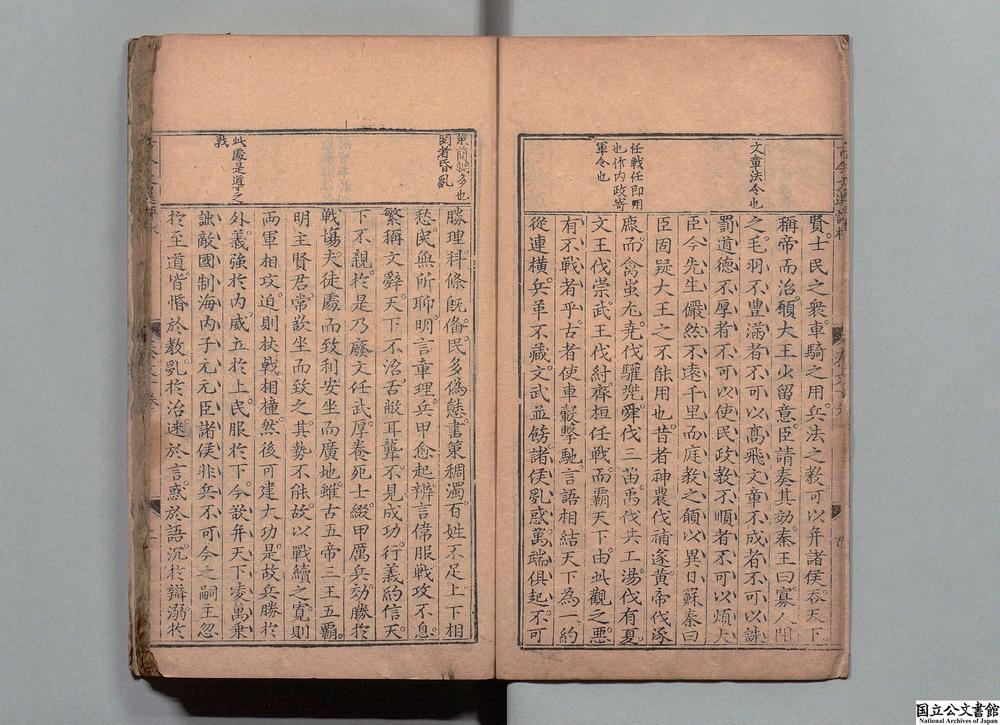 賢士民之衆車騎之用兵法之教可以并諸侯吞天下
稱帝而治願大王少留意臣請奏其效秦王曰寡人聞
之毛羽不豐滿者不可以高飛文章不成者不可以誅
罰道德不厚者不可以使民政教不順者不可以煩大
臣今先生儼然不遠千里而庭教之願以異日蘇秦曰
臣固疑大王之不能用也昔者神農伐補遂黃帝伐涿
鹿而禽蚩尤堯伐驩兜舜伐三苗禹伐共工湯伐有夏
文王伐崇武王伐紂齊桓任戰而霸天下由此觀之惡
有不戰者乎古者使車轂擊馳言語相結天下為一約
從連橫兵革不藏文武並餝諸侯亂惑萬端俱起不可
文章法令也
任戰任即用
也作內政寄
軍令也
勝理科條旣偹民多偽態書策稠濁百姓不足上下相
愁民無所聊明言章理兵甲愈起辨言偉服戰攻不息
繁稱文辭天下不治舌敝耳聾不見成功行義約信天
下不親於是乃廢文任武厚養死士綴甲厲兵効勝於
戰塲夫徒處而致利安坐而廣地雖古五帝三王五霸
明主賢君常欲坐而致之其勢不能故以戰續之寬則
兩軍相攻迫則杖戟相橦然後可建大功是故兵勝於
外義強於內威立於上民服於下今欲并天下凌萬乗
詘敵國制海內子元元臣諸侯非兵不可今之嗣王忽
於至道皆惛於教亂於治迷於言惑於語沉於辯溺於
策簡稠多也
閔者昏亂
此處是導之
戰
国立公文書館
National Archives of Japan